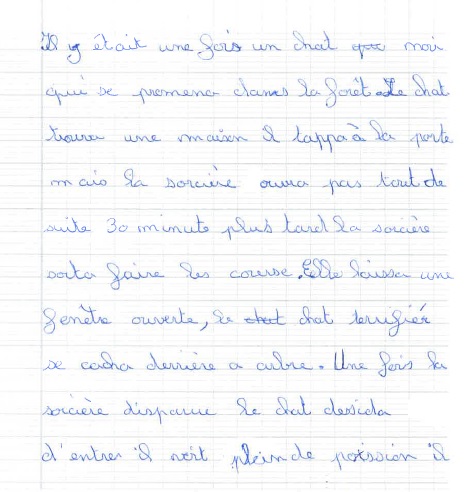 Il y était une fois un chat noir
qui se promena dans la forêt. Le chat
trouva une maison il tappa à la porte
mais la sorcière ouvra pas tout de
suite 30 minute plus tard la sorcière
sorta faire les course. Elle laissa une
fenêtre ouverte, le chat terrifiér
se cacha derrière a arbre. Une fois la
sorcière disparue le chat desida
d'entrer il vert plein de potssion il